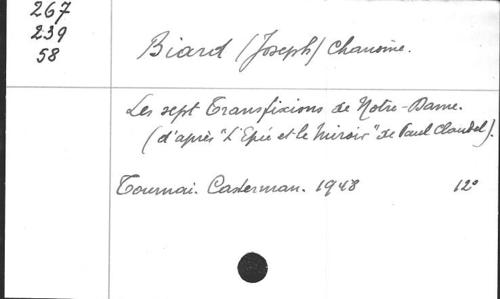 267
239
58
Biard (Joseph) Chanoine.
Les sept Transfixions de Notre-Dame.
(d'après "L'Epée et le Miroir" de Paul Claudel).
Tournai. Casterman. 1948 12°